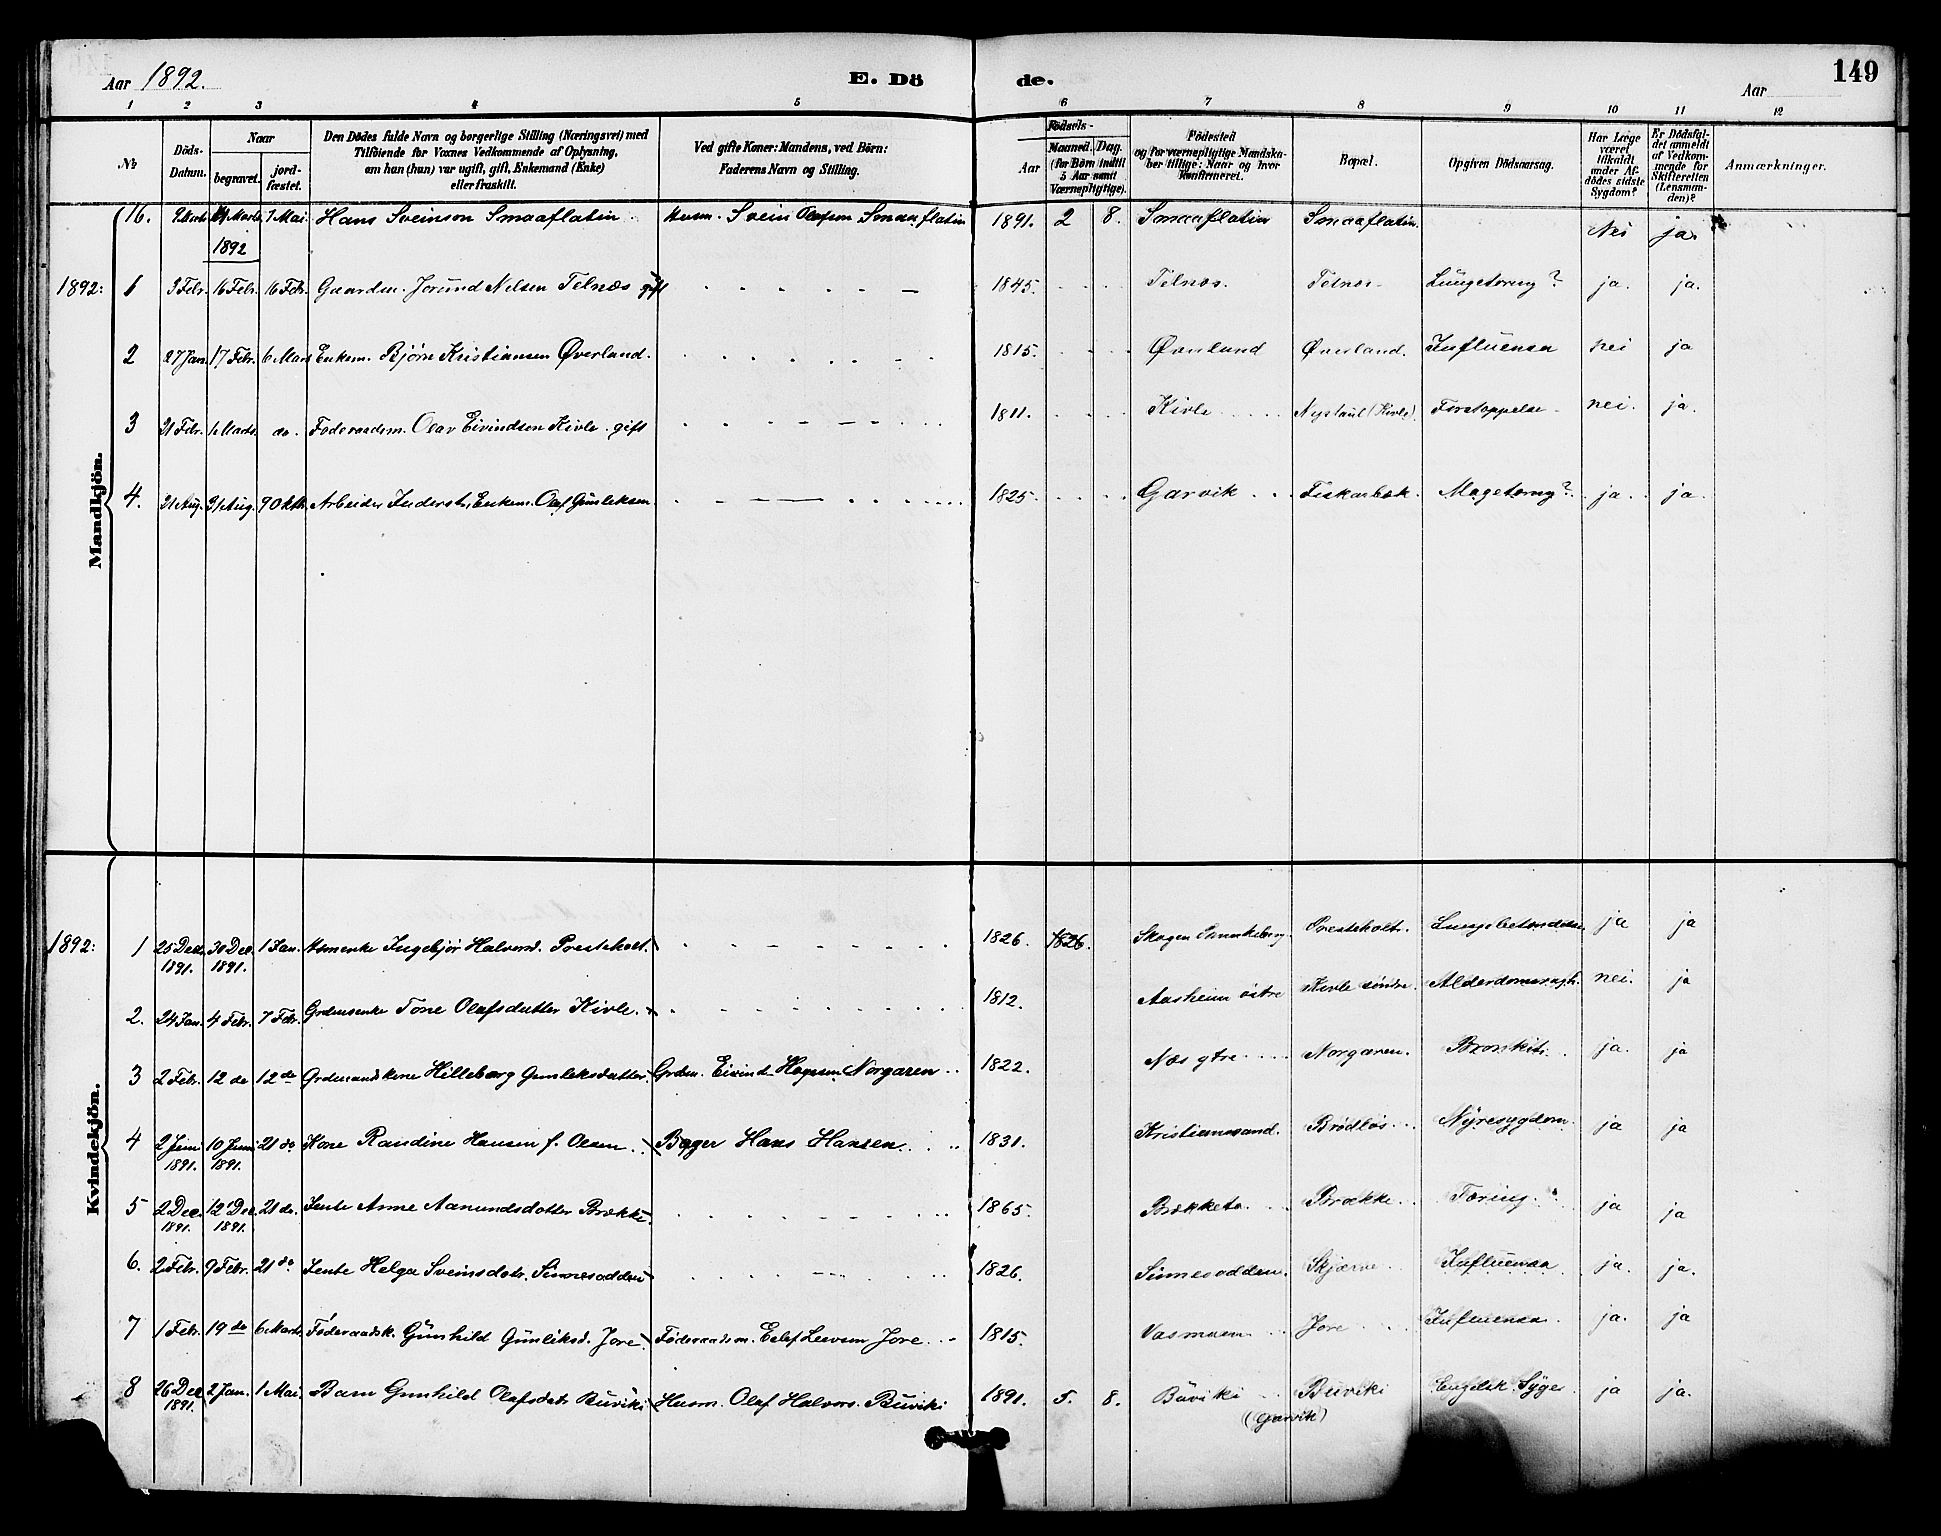 Aar 1892. E. Dö de. Aar 149
1 2 3 4 5 6 7 8 9 10 11 12
№ Döds-Datum. Naar begravet. jordfæstet. Den Dödes fulde Navn og borgerlige Stilling (Næringsvei) med Tilföiende for Voxnes Vedkommende af Oplysning, om han (hun) var ugift, gift, Enkemand (Enke) eller fraskilt. Ved gifte Koner: Mandens, ved Börn: Faderens Navn og Stilling. Födsels- Aar Maaned. Dag. (for Börn indtil 5 Aar samt Værnepligtige). Födested og for værnepligtige Mandskaber tillige: Naar og hvor konfirmeret. Bopæl. Opgiven Dödsaarsag. Har Læge været tilkaldt under Afdödes sidste Sygdom? Er Dödsfaldet anmeldt af Vedkommende for Skifteretten (Lensmanden)? Anmærkninger.
Mandkjön.
16. 9 Marts 7 Mai. Hans Sveinson Smaaflatin. Husm. Svein Olafsen Smaaflatin 1891. 2 8. Smaaflatin Smaaflatin. Nei ja.
1892
1892: 1 3 Febr. 16 Febr. 16 Febr. Gaardm. Jorund Nilsen Telnæs gift 1845. Telnæs. Telnæs. Lungetæring? ja. ja.
2 27 Jan. 17 Febr. 6 Mars Enkem. Bjørn Kristiansen Øverland. 1815. Øverland Øverland. Influensa nei ja
3 21 Febr. 1 Marts. do. Føderaadsm. Olav Eivindsen Kivle. gift 1811. Kivle Nystaul (Kivle) Forstoppelse. nei. ja.
4. 21 Aug. 31 Aug. 9 Okth. Arbeider Inderst, Enkem. Olaf Gunleksen 1825. Garvik Fiskarbæk. Magetæring? ja. ja
Kvindekjön.
1892: 1 25 Dec. 1891. 30 Dec. 1891. 1 Jan. Husmenke Ingebjør Halvorsd. Presteholt. 1826. 1826. Skogen Presteholt. Lungebetændelse ja ja
2. 24 Jan. 4 Febr. 7 Febr. Grdmsenke Tone Olafsdatter Kivle. 1812. Aasheim østre Kivle søndre. Alderdomssvagh. nei. ja
3 2 Febr. 12 do 12 do Grdmandskone Hilleborg Gunleksdatter. Grdm. Eivind Norgaren 1822. Næs ytre Norgaren. Bronkit. ja. ja
4 2 Juni 1891. 10 Juni 1891. 21 do Kone Randine Hansen f. Olsen. Bager Hans Hansen. 1831. Kristianssand. Brødløs. Nyresygdom. ja ja
5 2 Dec. 1891. 12 Dec. 1891. 21 do. Jente Anne Aanundsdatter Brække. 1865. Brække. Tæring. ja ja
6. 2 Febr. 9 Febr. 21 do Jente Helga Sveinsdatr. Sinnesodden 1826. Sinnesodden. Influensa ja. ja.
7 1 Febr. 19 do 6 Marts. Føderaadsk. Gunhild Gunliksd. Jore. Føderaadsm. Jore. 1815. Vasmoen Jore Influensa. ja. ja
8 26 Dec. 1891. 2 Jan. 1 Mai. Barn Gunhild Olafsdatr. Buviki Husm. Olaf Halvors. Buviki 1891. 5. 8. Buviki Buviki Engelsk Syge. ja ja.
(Garvik)